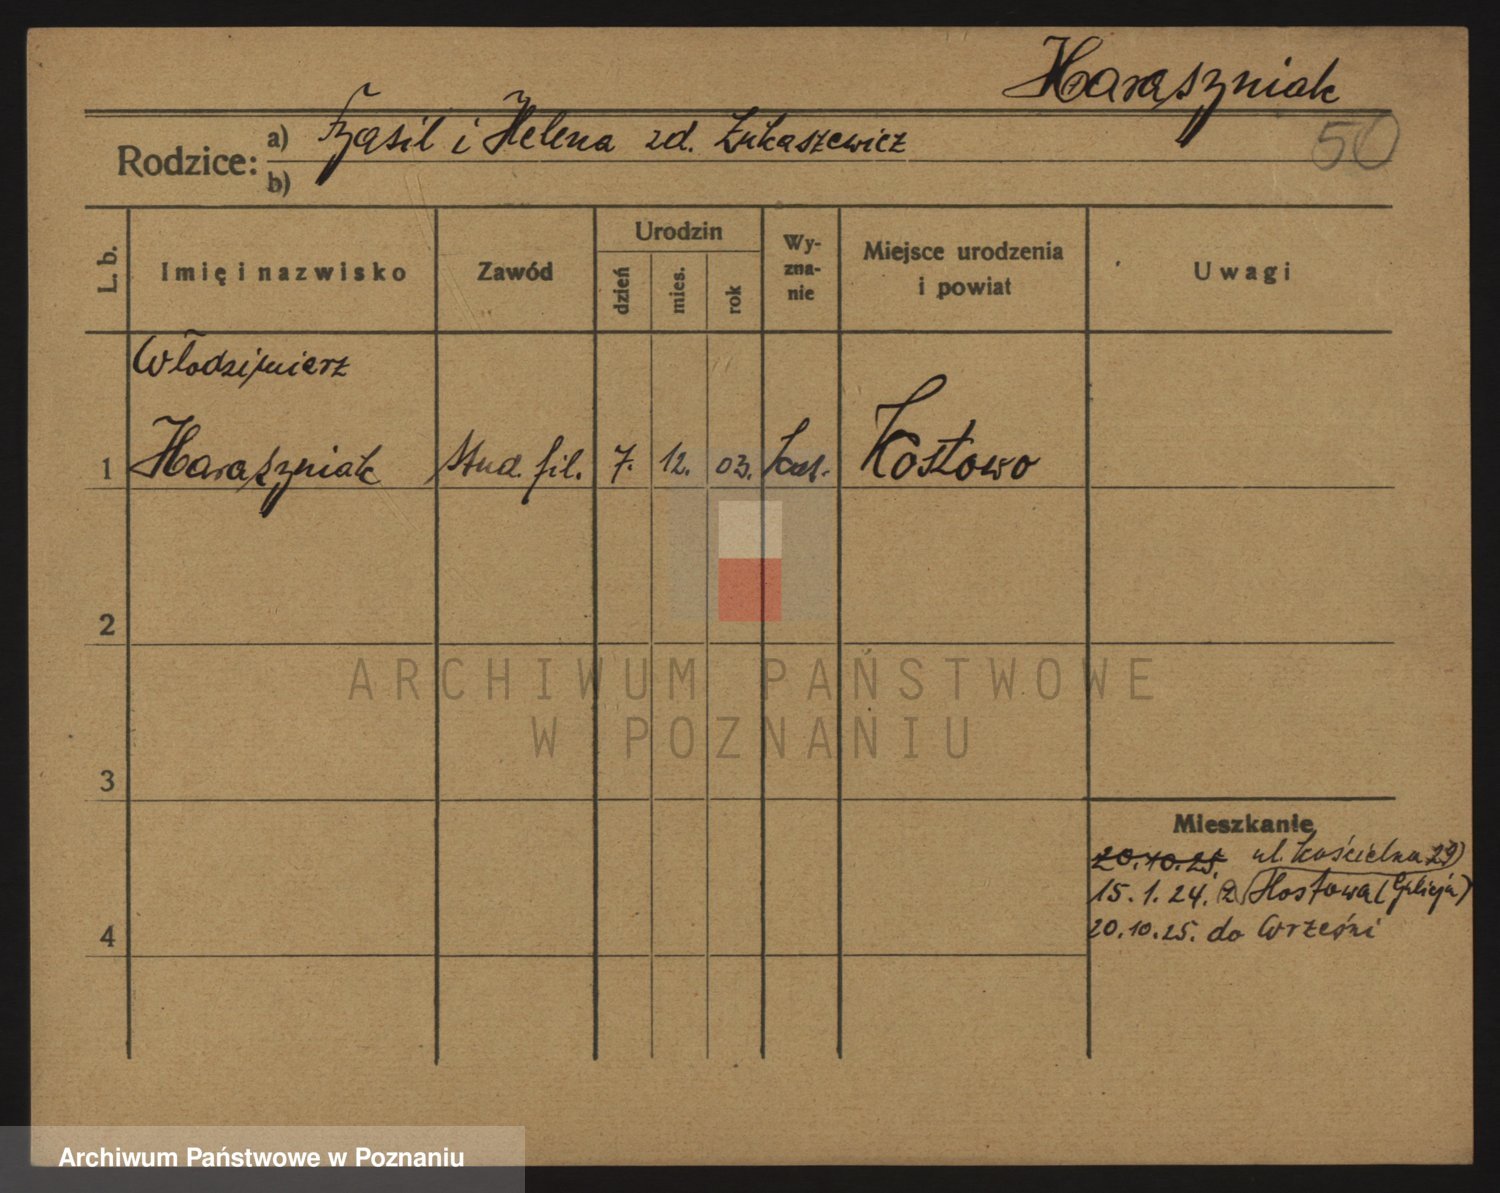 Haraszniak
50
Rodzice: a) i Helena zd. Łukaszewicz
b)
L. b.
Imię i nazwisko
Zawód
Urodzin
dzień
mies.
rok
Wy-
zna-
nie
Miejsce urodzenia
i powiat
Uwagi
Włodzimierz
1 Haraszniak stud. fil. 7. 12. 03. kat. Kostowo
2
3
4
Mieszkanie
20.10.25. ul. Kościelna 29)
15.1.24. z Hostowa (Galicja)
20.10.25. do Wrześni
ARCHIWUM PAŃSTWOWE
W POZNANIU
Archiwum Państwowe w Poznaniu